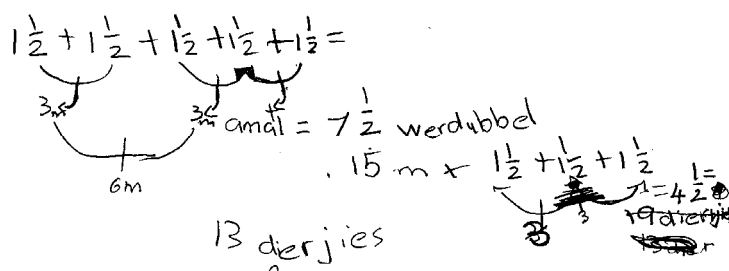 1 1/2 + 1 1/2 + 1 1/2 + 1 1/2 + 1 1/2 =
3m 3m
amal = 7 1/2 werdubbel
6m
15 m + 1 1/2 + 1 1/2 + 1 1/2
= 4 1/2 =
3 3
+ 9 dierjie
13 dierjies